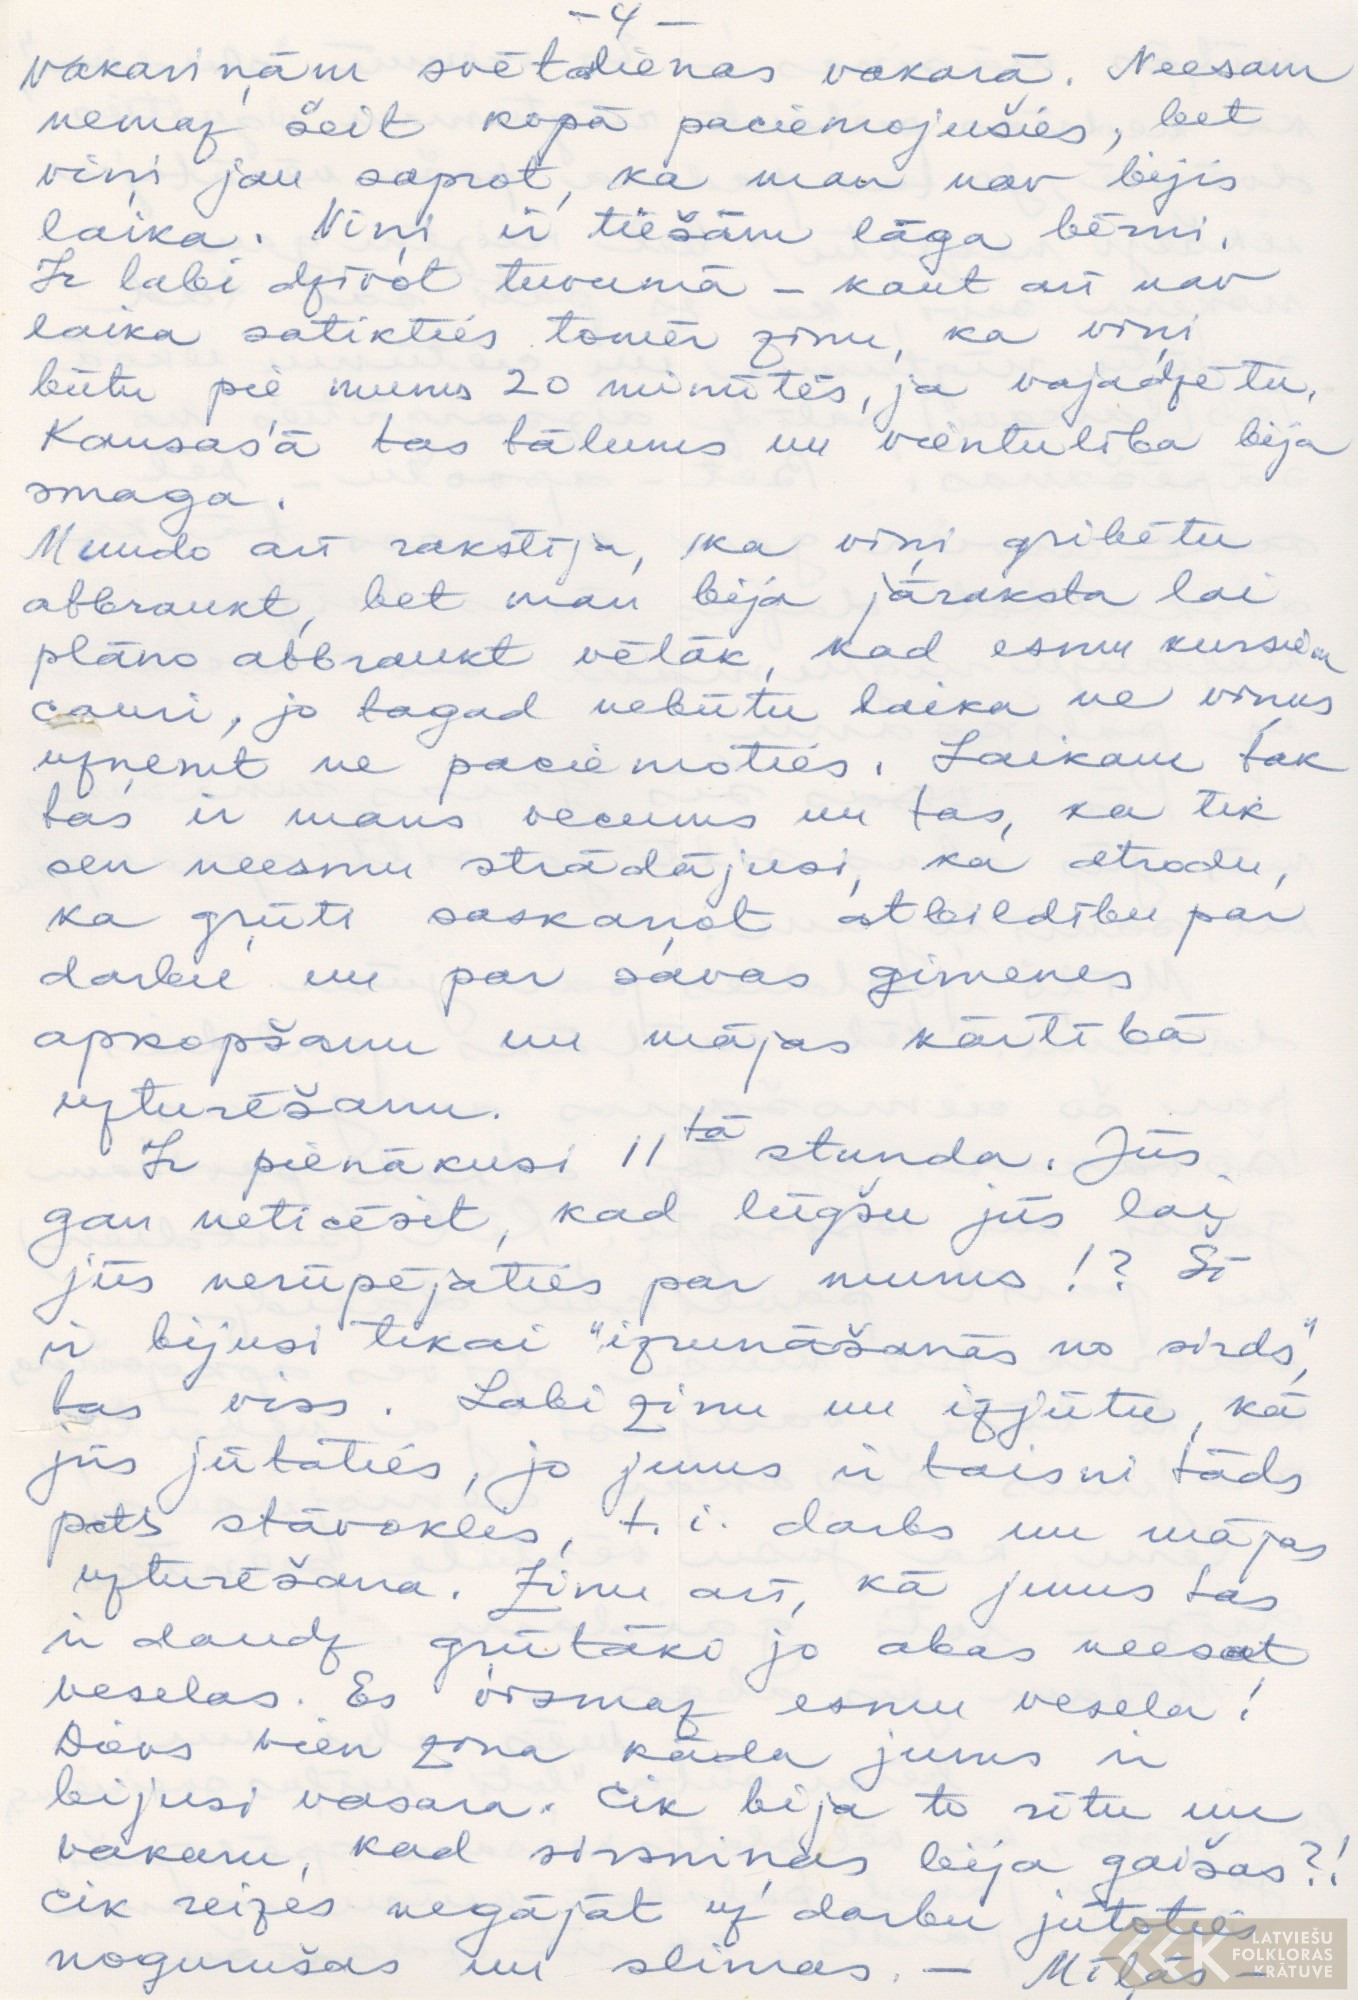 -4-
vakariņām svētdienas vakarā. Neesam
nemaz šeit kopā paciemojušies, bet
viņi jau saprot, ka man nav bijis
laika. Viņi ir tiešām lāga bērni.
Ir labi dzīvot tuvumā - kaut arī nav
laika satikties tomēr zinu, ka viņi
būtu pie mums 20 minūtēs, ja vajadzētu.
Kansas'ā tas tālums un vientulība bija
smaga.
Mundo arī rakstīja, ka viņi gribētu
atbraukt, bet man bija jāraksta lai
plāno atbraukt vēlāk, kad esmu kursiem
cauri, jo tagad nebūtu laika ne viņus
uzņemt ne paciemoties. Laikam tak
tas ir mans vecums un tas, ka tik
sen neesmu strādājusi, ka atrodu,
ka grūti saskaņot atbildību par
darbu un par savas ģimenes
apkopšanu un mājas kārtībā
uzturēšanu.
Ir pienākusi 11tā stunda. Jūs
gan neticēsit, kad lūgšu jūs lai
jūs nerūpējaties par mums!? Šī
ir bijusi tikai "izrunāšanās no sirds",
tas viss. Labi zinu un izjūtu, kā
jūs jūtaties, jo jums ir taisni tāds
pats stāvoklis, t.i. darbs un mājas
uzturēšana. Zinu arī, kā jums tas
ir daudz grūtāki jo abas neesat
veselas. Es vismaz esmu vesela!
Dievs vien zina kāda jums ir
bijusi vasara. Cik bija to rītu un
vakaru, kad sirsniņas bija gaišas?!
Cik reizes negājāt uz darbu jūtoties
nogurušas un slimas. - Mīļās -
LATVIEŠU
FOLKLORAS
KRĀTUVE